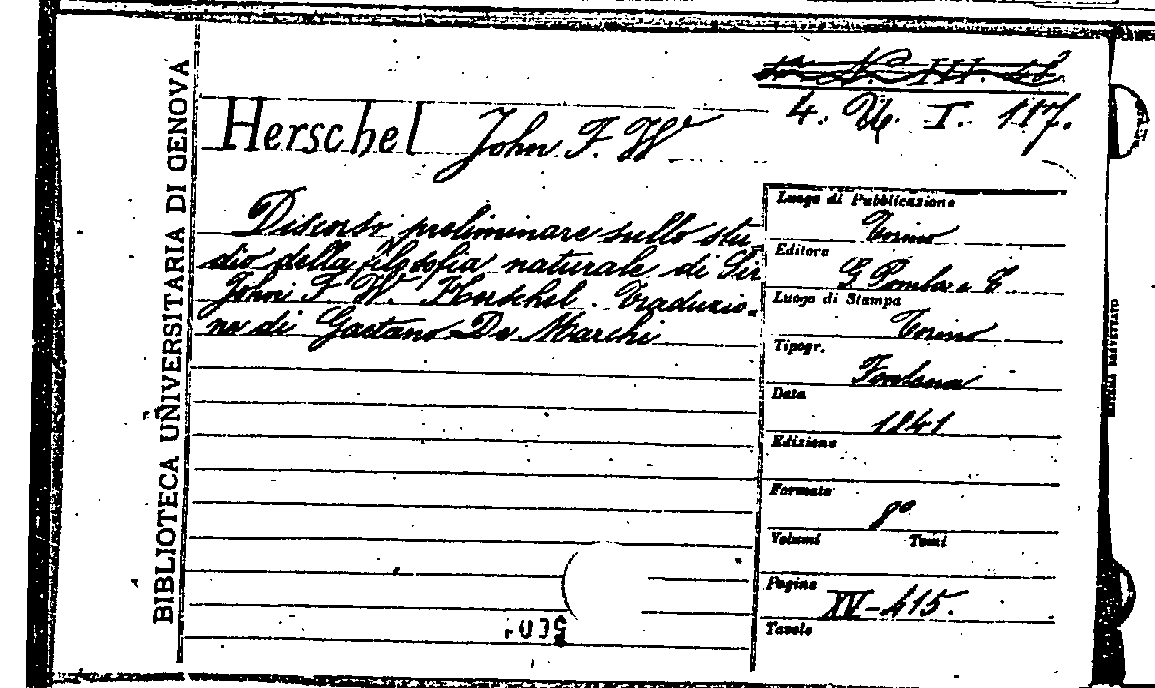 BIBLIOTECA UNIVERSITARIA DI GENOVA
4. U. I. 117.
Herschel John F. W
Discorso preliminare sullo stu-
dio della filosofia naturale di Sir
John F. W. Herschel. Traduzio-
ne di Gaetano De Marchi
Luogo di Pubblicazione
Torino
Editore
G. Pomba e C.
Luogo di Stampa
Torino
Tipogr.
Fontana
Data
1841
Edizione
Formato
8°
Volumi Tomi
Pagine
XV-415.
Tavole